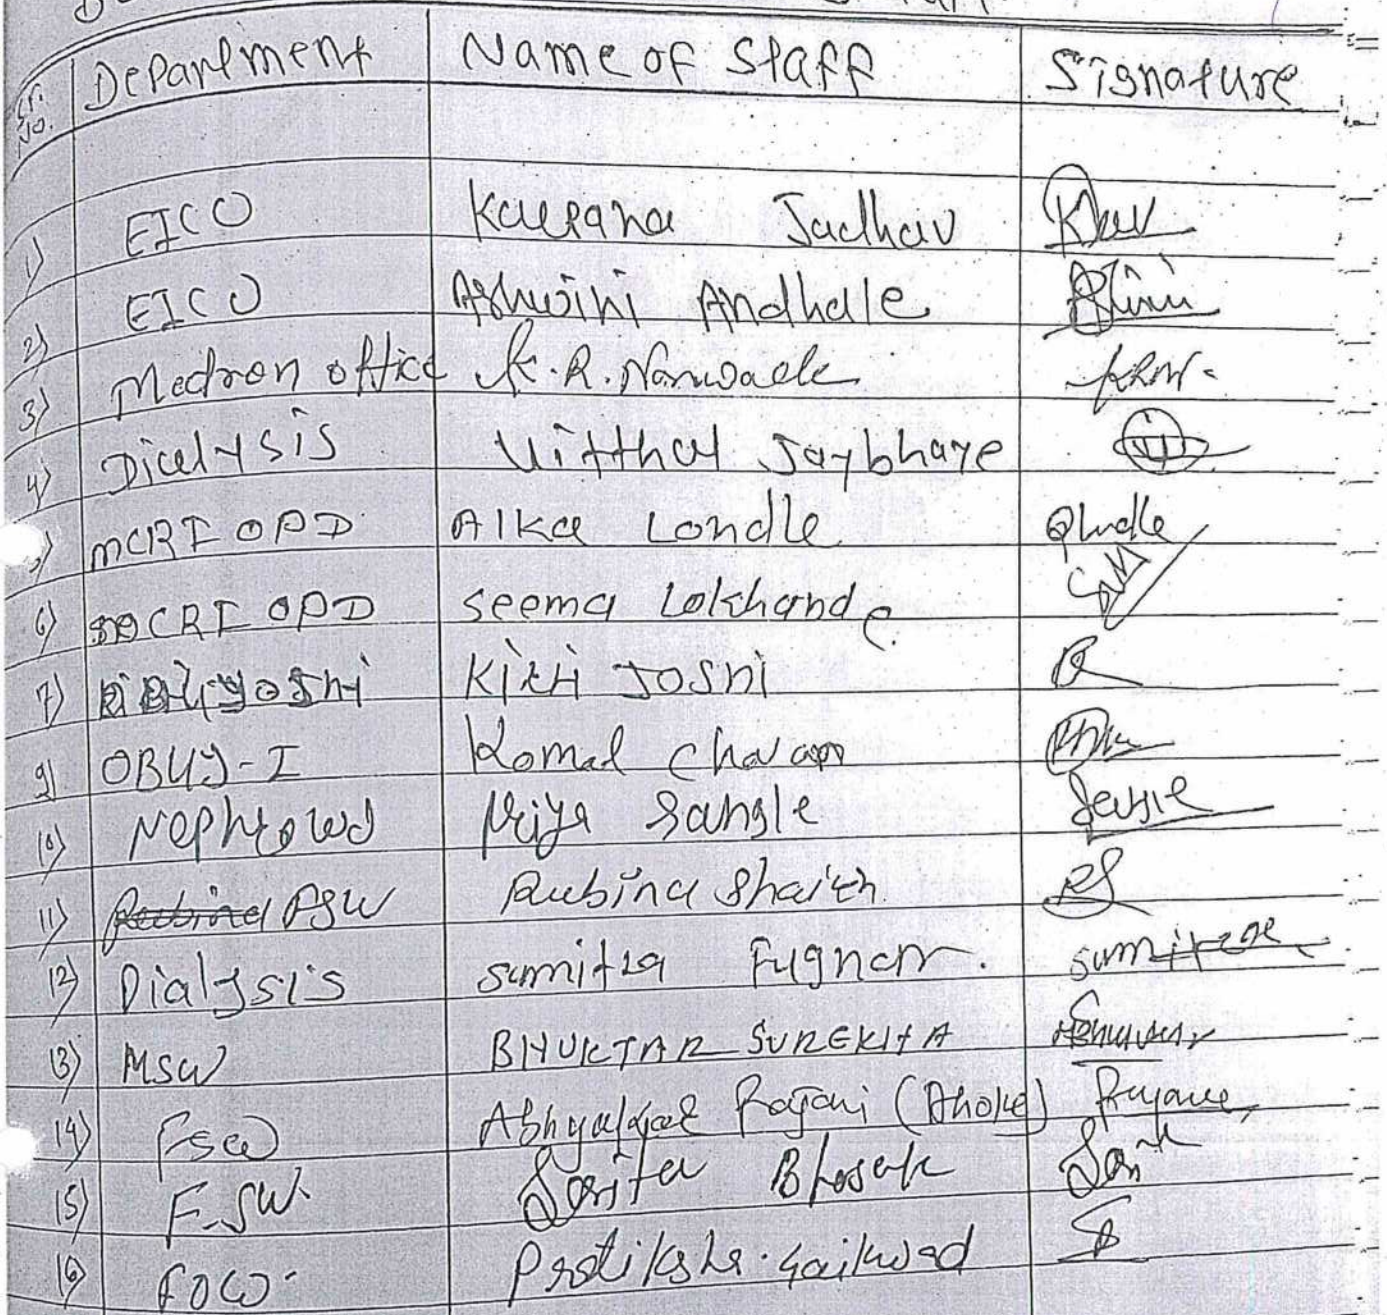 Sr. No. Department Name of Staff Signature
1) EICU Kalpana Jadhav
2) EICU Ashwini Andhale
3) Medron office K. R. Narwade KRN.
4) Dialysis Vitthal Jaybhaye
5) MCRI OPD Alka Londle
6) MCRI OPD Seema Lokhande
7) Kirti Joshi
9) OBUY-I Komal Chavan
10) Nephrowd Priya Sangle
11) PSW Rubina Shaikh RS
12) Dialysis Sumitra Fugnar.
13) MSW BHUKTAR SUREKHA
14) FSW Rajani (Dhoke)
15) F.SW. Sarita Bhosale
16) FOW. Pratiksha Gaikwad